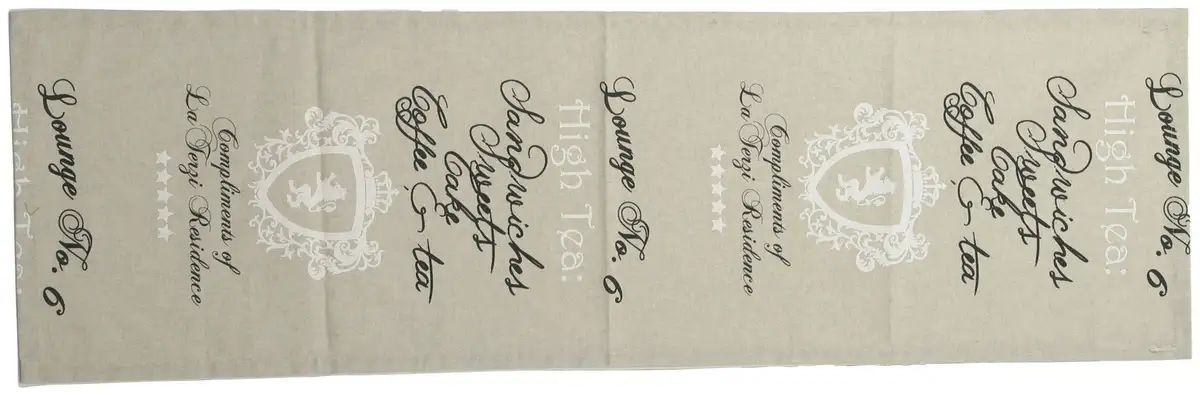 Lounge No. 6
High Tea:
Sandwiches
Sweets
Cake
Coffee & tea
Compliments of
La Terzi Residence
Lounge No. 6
High Tea:
Sandwiches
Sweets
Cake
Coffee & tea
Compliments of
La Terzi Residence
Lounge No. 6
High Tea: